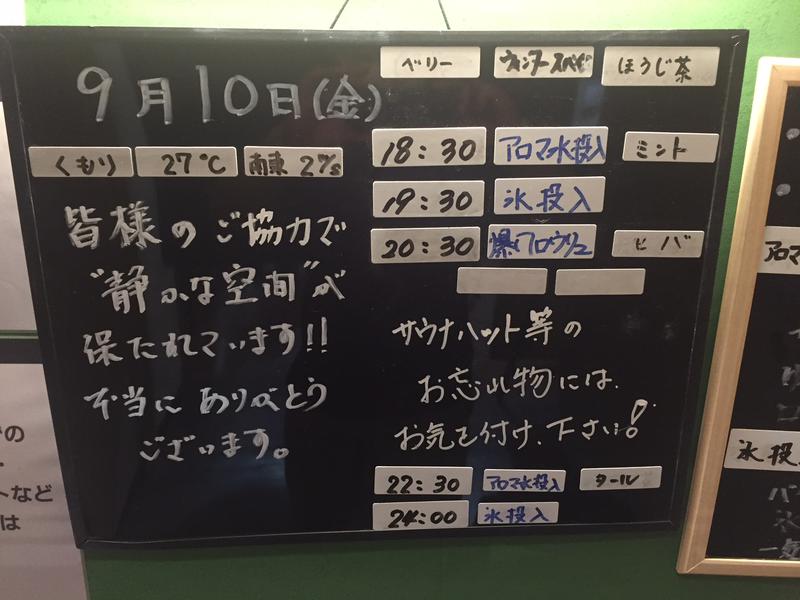 9月10日(金)
くもり 27℃ 南東 2m/s
皆様のご協力で
"静かな空間"が
保たれています!!
本当にありがとう
ございます。
ベリー ウィンタースパイス ほうじ茶
18:30 アロマ水投入 ミント
19:30 氷投入
20:30 爆アロウリュ ヒバ
サウナハット等の
お忘れ物には、
お気を付け、下さい!
22:30 アロマ水投入 タール
24:00 氷投入
の
トなど
は
アロマ
氷投